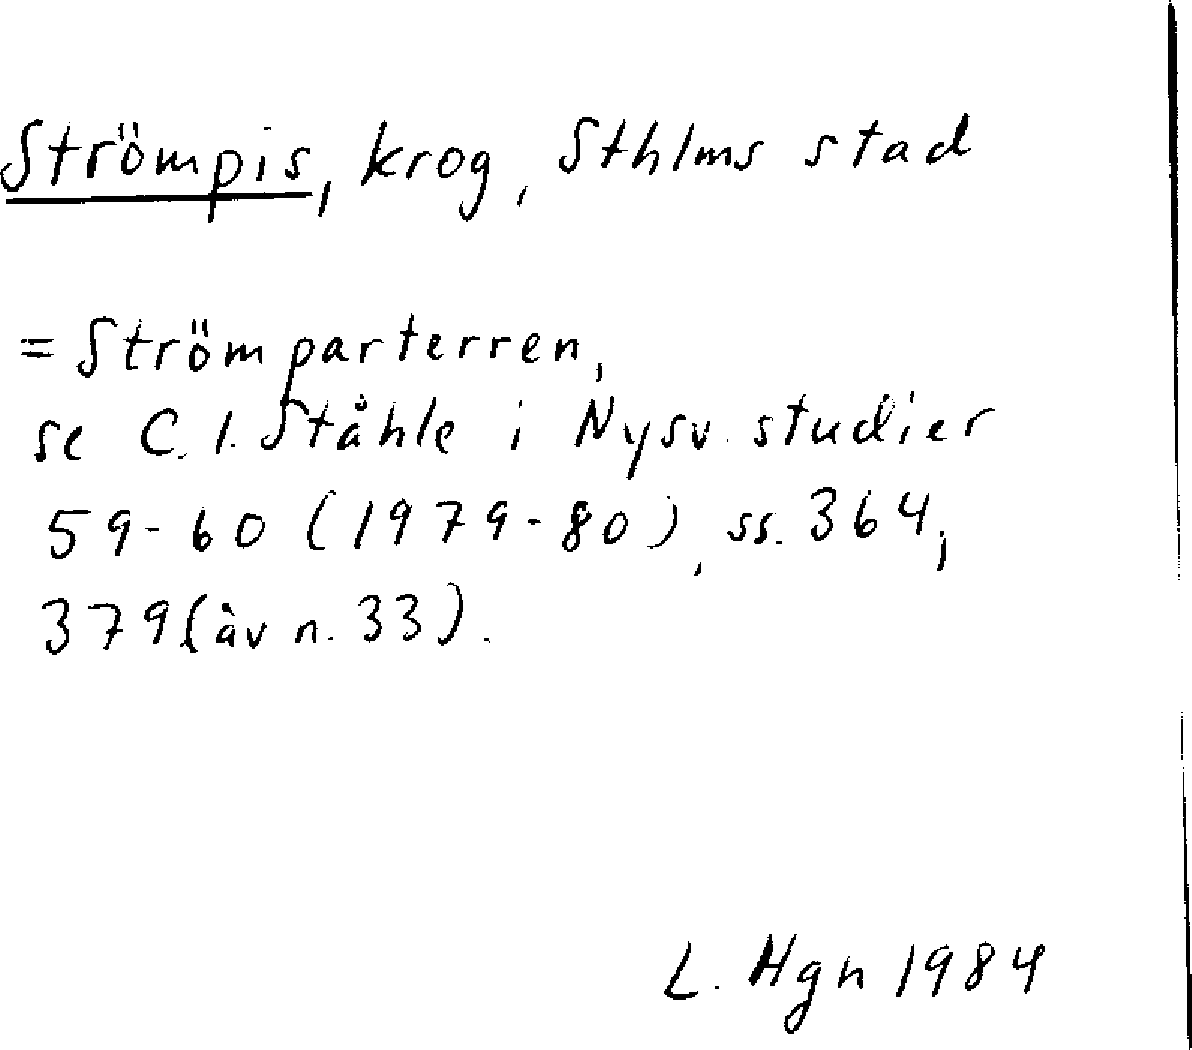 Strömpis, krog, Sthlms stad
= Strömparterren,
se C. I. Ståhle i Nysv. studier
59-60 (1979-80), ss. 364,
379 (äv n. 33).
L. Hgn 1984